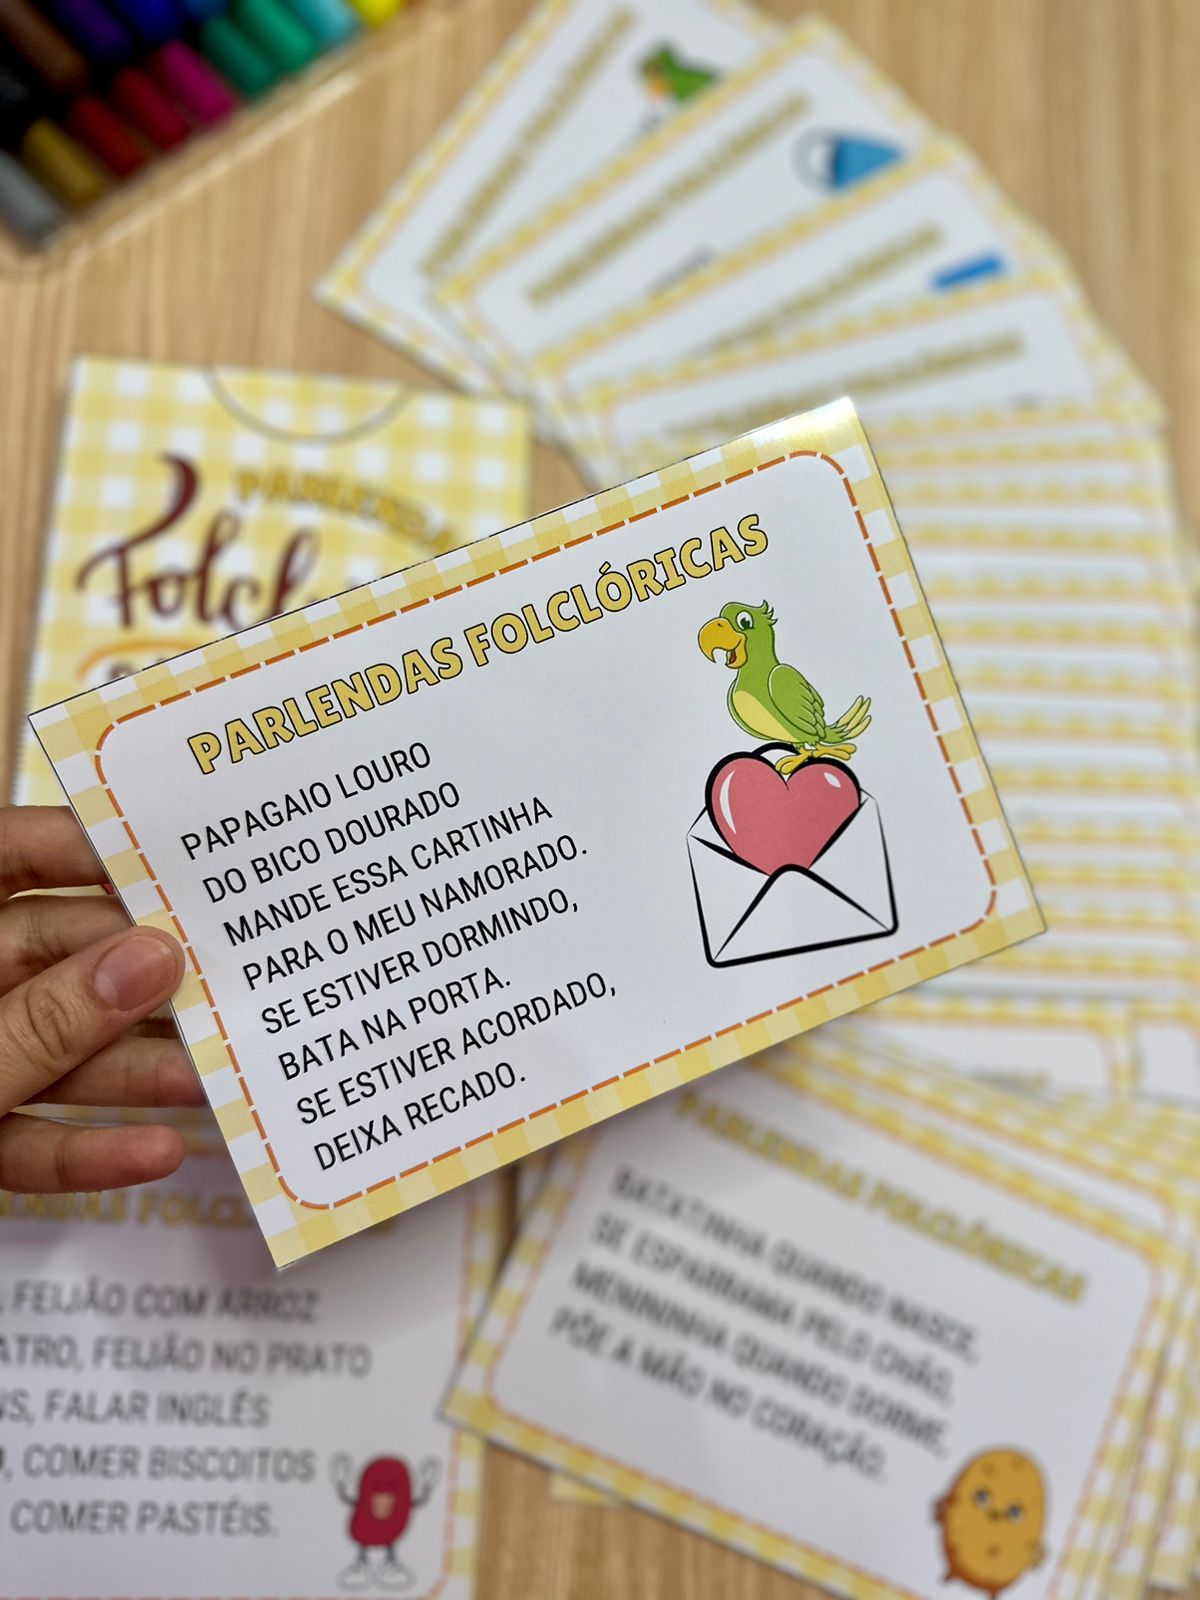 PARLENDAS
Folcl
PARLENDAS FOLCLÓRICAS
PAPAGAIO LOURO
DO BICO DOURADO
MANDE ESSA CARTINHA
PARA O MEU NAMORADO.
SE ESTIVER DORMINDO,
BATA NA PORTA.
SE ESTIVER ACORDADO,
DEIXA RECADO.
FEIJÃO COM ARROZ
ATRO, FEIJÃO NO PRATO
FALAR INGLÊS
COMER BISCOITOS
COMER PASTÉIS.
PARLENDAS FOLCLÓRICAS
BATATINHA QUANDO NASCE,
SE ESPARRAMA PELO CHÃO,
MENININHA QUANDO DORME,
PÕE A MÃO NO CORAÇÃO.